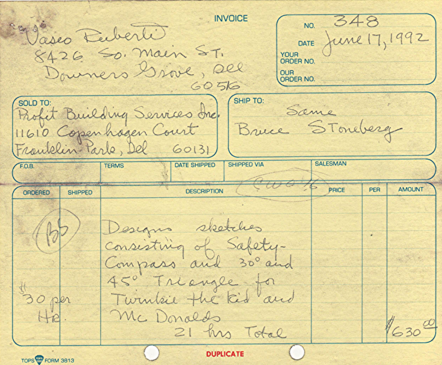 INVOICE
NO. 348
Vasco Ruberti
DATE June 17, 1992
8426 So. Main St.
YOUR ORDER NO.
Downers Grove, Ill
OUR ORDER NO.
60516
SOLD TO:
Profit Building Services Inc.
11610 Copenhagen Court
Franklin Park, Ill 60131
SHIP TO:
Same
Bruce Stoneberg
F.O.B. TERMS DATE SHIPPED SHIPPED VIA SALESMAN
ORDERED SHIPPED DESCRIPTION PRICE PER AMOUNT
BS
Designs sketches
consisting of Safety-
Compass and 30° and
45° Triangle for
$30 per Turnkie the Kid and
HR. Mc Donalds
21 hrs Total $630.00
DUPLICATE
TOPS FORM 3913